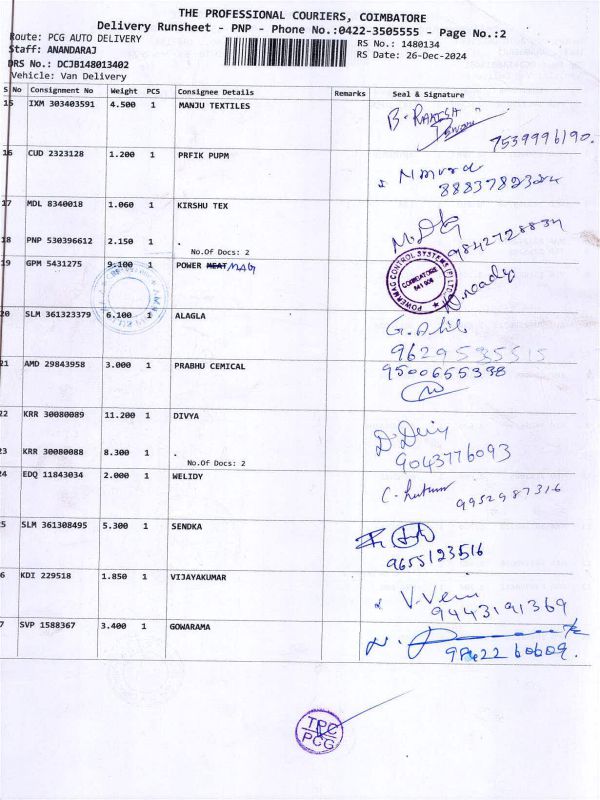 THE PROFESSIONAL COURIERS, COIMBATORE
Delivery Runsheet - PNP - Phone No.:0422-3505555 - Page No.:2
Route: PCG AUTO DELIVERY
RS No.: 1480134
Staff: ANANDARAJ
RS Date: 26-Dec-2024
DRS No.: DCJB148013402
Vehicle: Van Delivery
S No Consignment No Weight PCS Consignee Details Remarks Seal & Signature
15 IXM 303403591 4.500 1 MANJU TEXTILES
B. RAKESH
7539996190.
16 CUD 2323128 1.200 1 PRFIK PUPM
17 MDL 8340018 1.060 1 KIRSHU TEX
9842728834
18 PNP 530396612 2.150 1 .
No.Of Docs: 2
19 GPM 5431275 9.100 1 POWER MEAT MAG
POWERMAG CONTROL SYSTEMS (P) LTD
COIMBATORE
20 SLM 361323379 6.100 1 ALAGLA
9629535515
21 AMD 29843958 3.000 1 PRABHU CEMICAL
9500655338
22 KRR 30080089 11.200 1 DIVYA
9043776093
23 KRR 30080088 8.300 1 .
No.Of Docs: 2
24 EDQ 11843034 2.000 1 WELIDY
9952987316
5 SLM 361308495 5.300 1 SENDKA
9655123516
6 KDI 229518 1.850 1 VIJAYAKUMAR
V. Veni
9443191369
7 SVP 1588367 3.400 1 GOWARAMA
N.
TPC
PCG